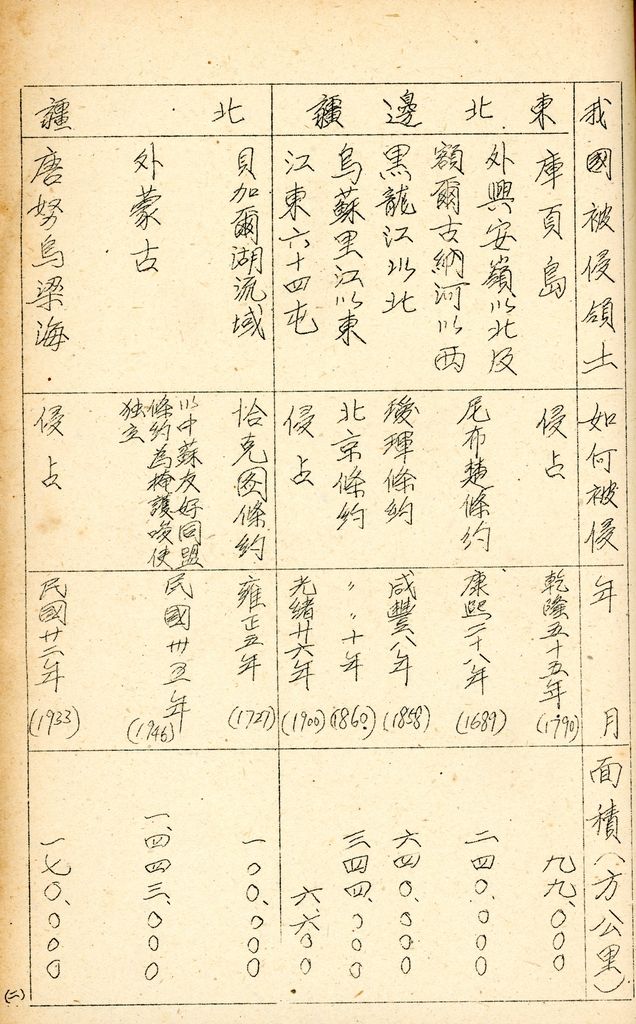 我國被侵領土
如何被侵
年月
面積（方公里）
東北邊疆
庫頁島
侵占
乾隆五十五年
(1790)
九九、〇〇〇
外興安嶺以北及
額爾古納河以西
尼布楚條約
康熙二十八年
(1689)
二四〇、〇〇〇
黑龍江以北
璦琿條約
咸豐八年
(1858)
六四〇、〇〇〇
烏蘇里江以東
北京條約
〃〃十年
(1860)
三四四、〇〇〇
江東六十四屯
侵占
光緒廿六年
(1900)
六、六〇〇
北疆
貝加爾湖流域
恰克图條約
雍正五年
(1727)
一〇〇、〇〇〇
外蒙古
以中蘇友好同盟
條約為掩護唆使
独立
民國卅五年
(1946)
一、四四三、〇〇〇
唐努烏梁海
侵占
民國廿二年
(1933)
一七〇、〇〇〇
(二)